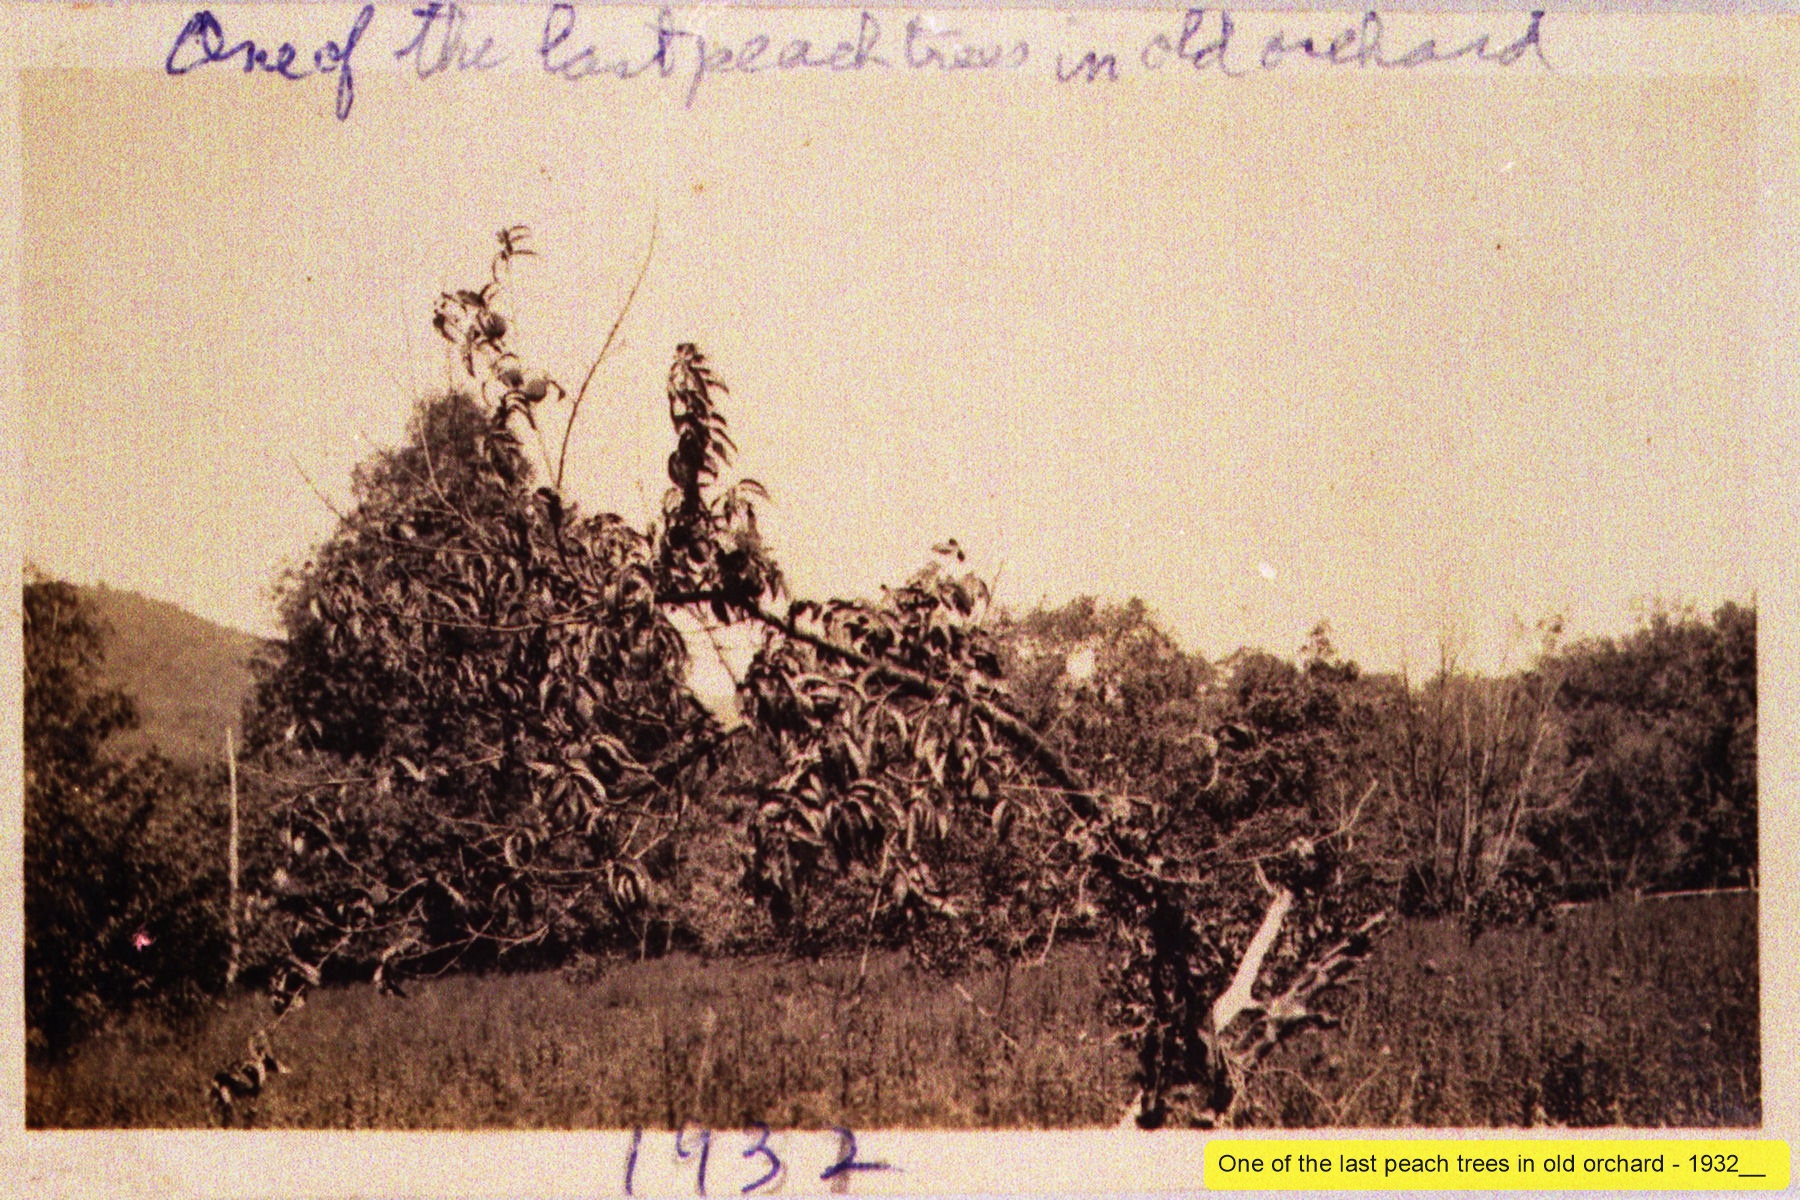 One of the last peach trees in old orchard
1932
One of the last peach trees in old orchard - 1932__